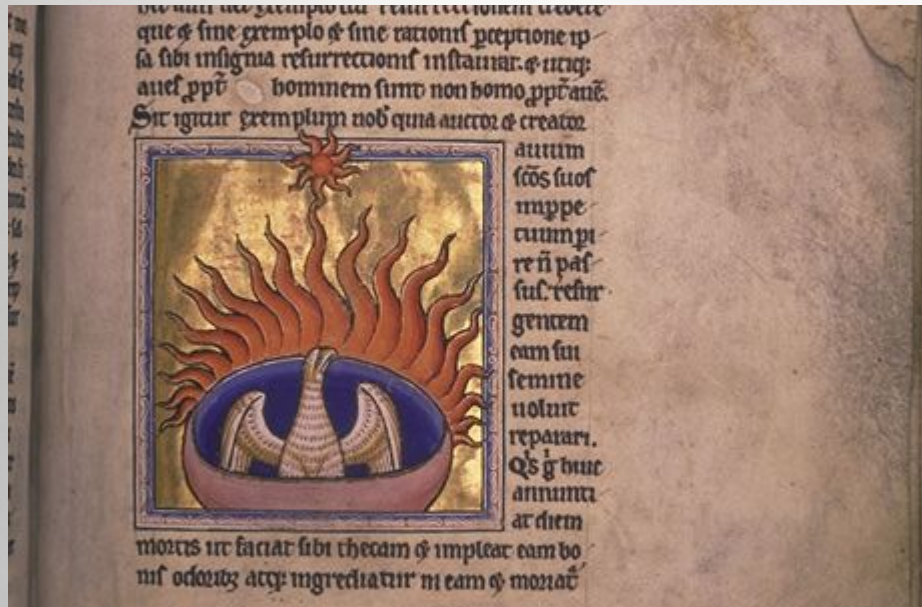 que & sine exemplo & sine rationis pceptione ip
sa sibi insignia resurrectionis instaurat. & utiq;
aues ppt hominem sunt non homo ppt auē.
Sit igitur exemplum nob quia auctor & creator
auium
scōs suos
inppe
tuum pi
re ñ pas
sus. resur
gentem
eam sui
semine
uoluit
reparari.
Qs g huic
annunti
at diem
mortis ut faciat sibi thecam & impleat eam bo
nis odorib; atq; ingrediatur in eam & moriat